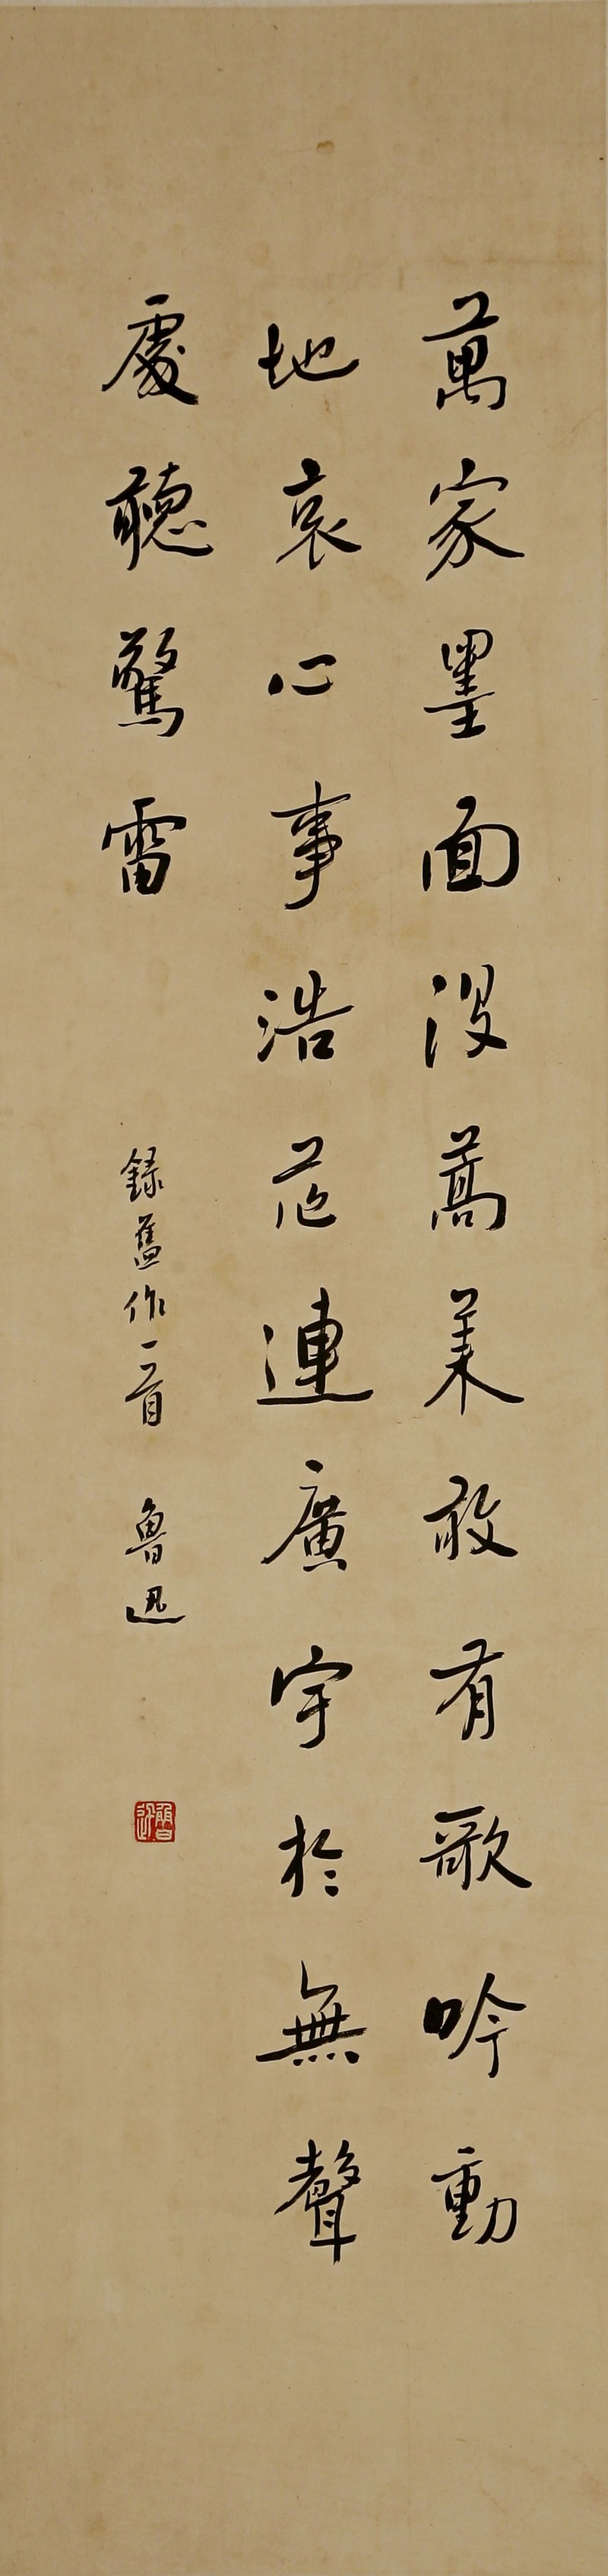 萬家墨面沒蒿萊敢有歌吟動
地哀心事浩茫連廣宇於無聲
處聽驚雷
錄舊作一首 魯迅
魯迅